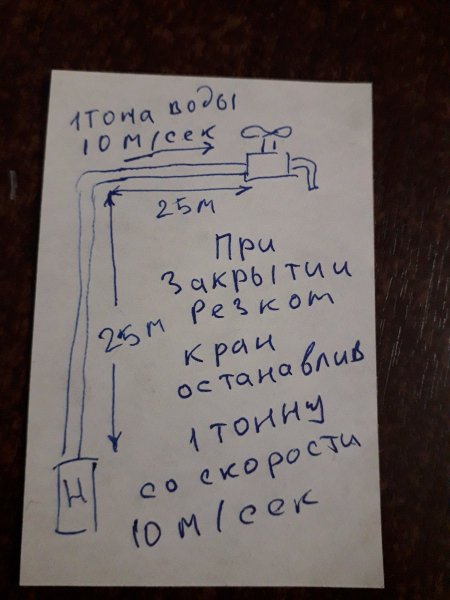 1 тона воды
10 м/сек
25м
25м
При
Закрытии
Резком
кран
останавлив
1 тонну
со скорости
10 м/сек
Н